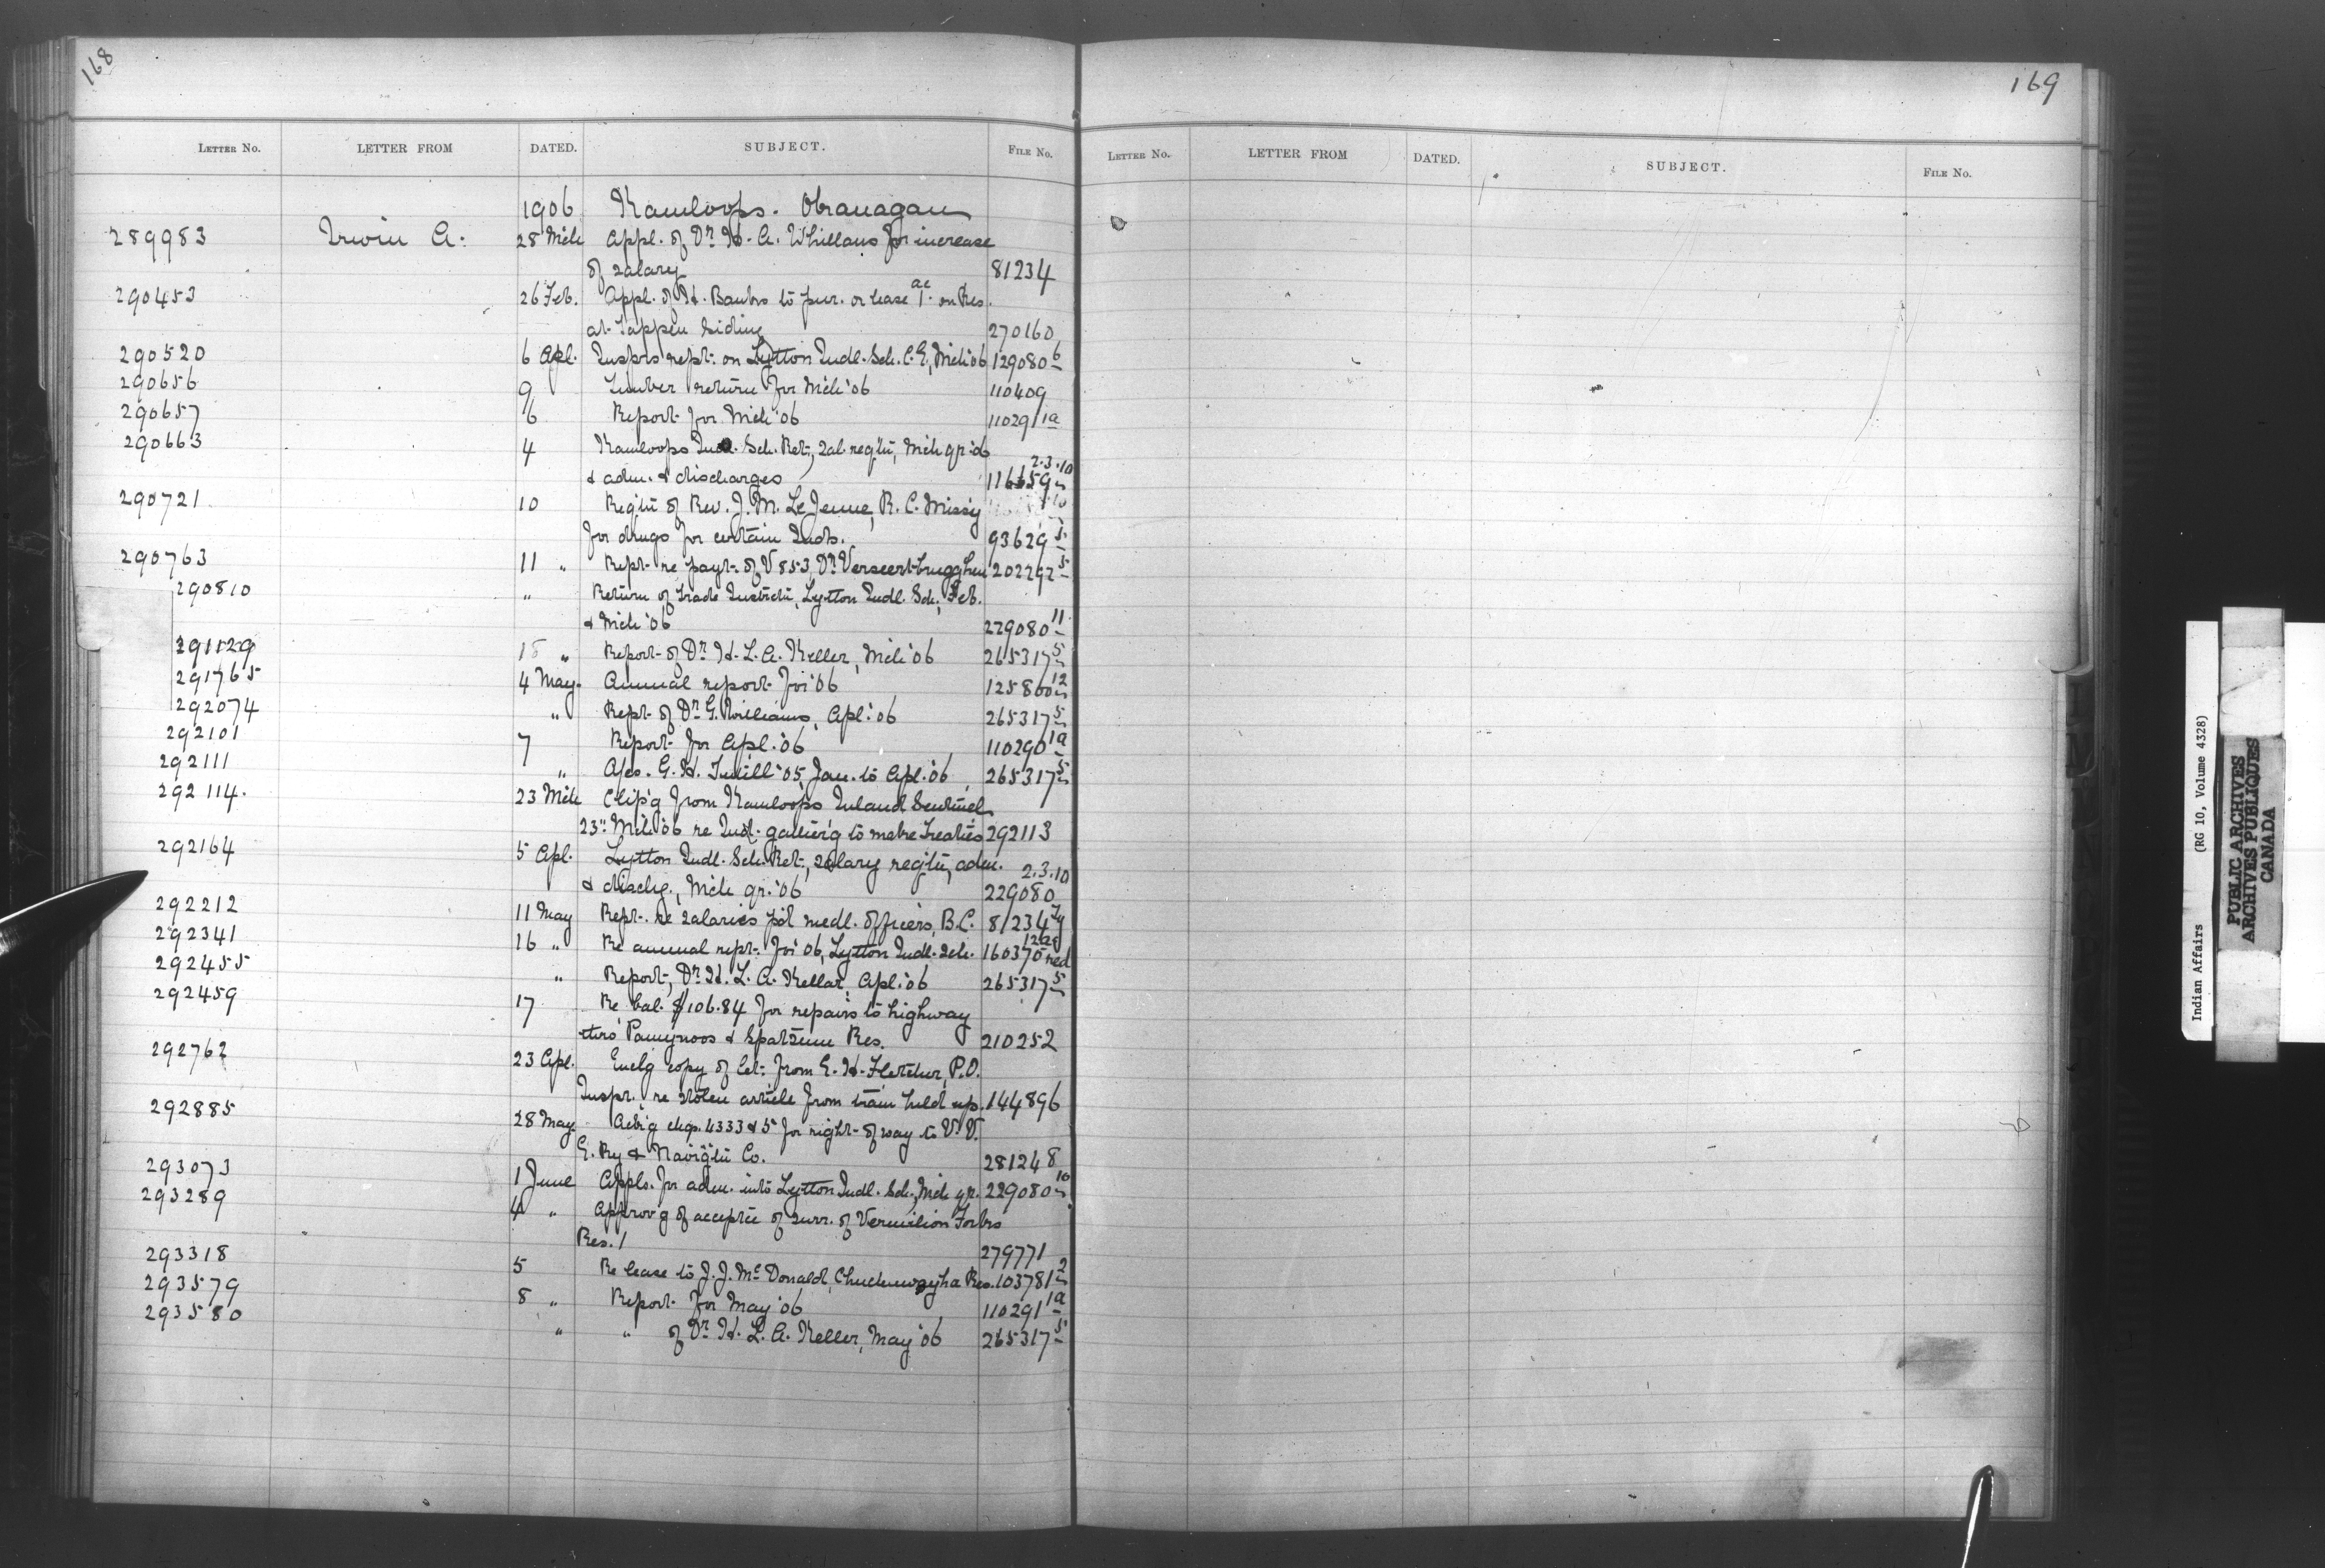 168
169
LETTER NO. LETTER FROM DATED. SUBJECT. FILE NO.
LETTER NO. LETTER FROM DATED. SUBJECT. FILE NO.
1906 Kamloops. Okanagan
289983 Irwin A. 28 Mch Appl. of Dr H. A. Whillans for increase
of salary 81234
290453 26 Feb. Appl. of H. to pur. or lease 1 ac. on Res.
at Tappen Siding 270160
290520 6 Apl. Insprs rept. on Lytton Indl. Sch. C.E, Mch '06 129080 6
290656 9 Timber return for Mch '06 110409
290657 6 Report for Mch '06 110291 1a
290663 4 Kamloops Indl. Sch. Ret., sal. reqtn, Mch qr. '06
& adm. & discharges 116659 2.3.10
290721 10 Reqtn of Rev. J. M. LeJeune, R. C. Missy
for drugs for certain Inds. 93629 5
290763 11 " Rept. re payt. of V 853, Dr Verseertbrugghen 202292 5
290810 " Return of trade Instrctn, Lytton Indl. Sch, Feb.
& Mch '06 229080 11
291129 18 " Report of Dr H. L. A. Keller, Mch '06 265317 5
291765 4 May. Annual report for '06 125800 12
292074 " Rept. of Dr G. Williams, Apl. '06 265317 5
292101 7 Report for Apl. '06 110290 1a
292111 " A/cs. G. H. Tutill '05, Jan. to Apl. '06 265317 5
292114. 23 Mch Clip'g from Kamloops Inland Sentinel
23" Mch '06 re Ind. gather'g to make Treaties 292113
292164 5 Apl. Lytton Indl. Sch. Ret., salary reqtn, adm.
& dischg., Mch qr. '06 229080 2.3.10
292212 11 May Rept. re salaries p'd medl. officers, B.C. 81234
292341 16 " Re annual rept. for '06, Lytton Indl. Sch. 160370 red
292455 " Report, Dr H. L. A. Kellar, Apl. '06 265317 5
292459 17 Re bal. $106.84 for repairs to highway
thro' Pamynoos & Spatsum Res. 210252
292762 23 Apl. Enclg copy of let. from E. H. Fletcher, P.O.
Inspr., re stolen article from train held up. 144896
292885 28 May. Ackg chqs. 4333 & 5 for right of way to V. V.
E. Ry & Navigtn Co. 281248
293073 1 June Appls. for adm. into Lytton Indl. Sch, Mch qr. 229080 10
293289 4 " Approv'g of acceptce of surr. of Vermilion Forks
Res. 1 279771
293318 5 Re lease to J. J. McDonald, Res. 103781 2
293579 8 " Report for May '06 110291 1a
293580 " " of Dr H. L. A. Keller, May '06 265317 5
Indian Affairs (RG 10, Volume 4328)
PUBLIC ARCHIVES
ARCHIVES PUBLIQUES
CANADA